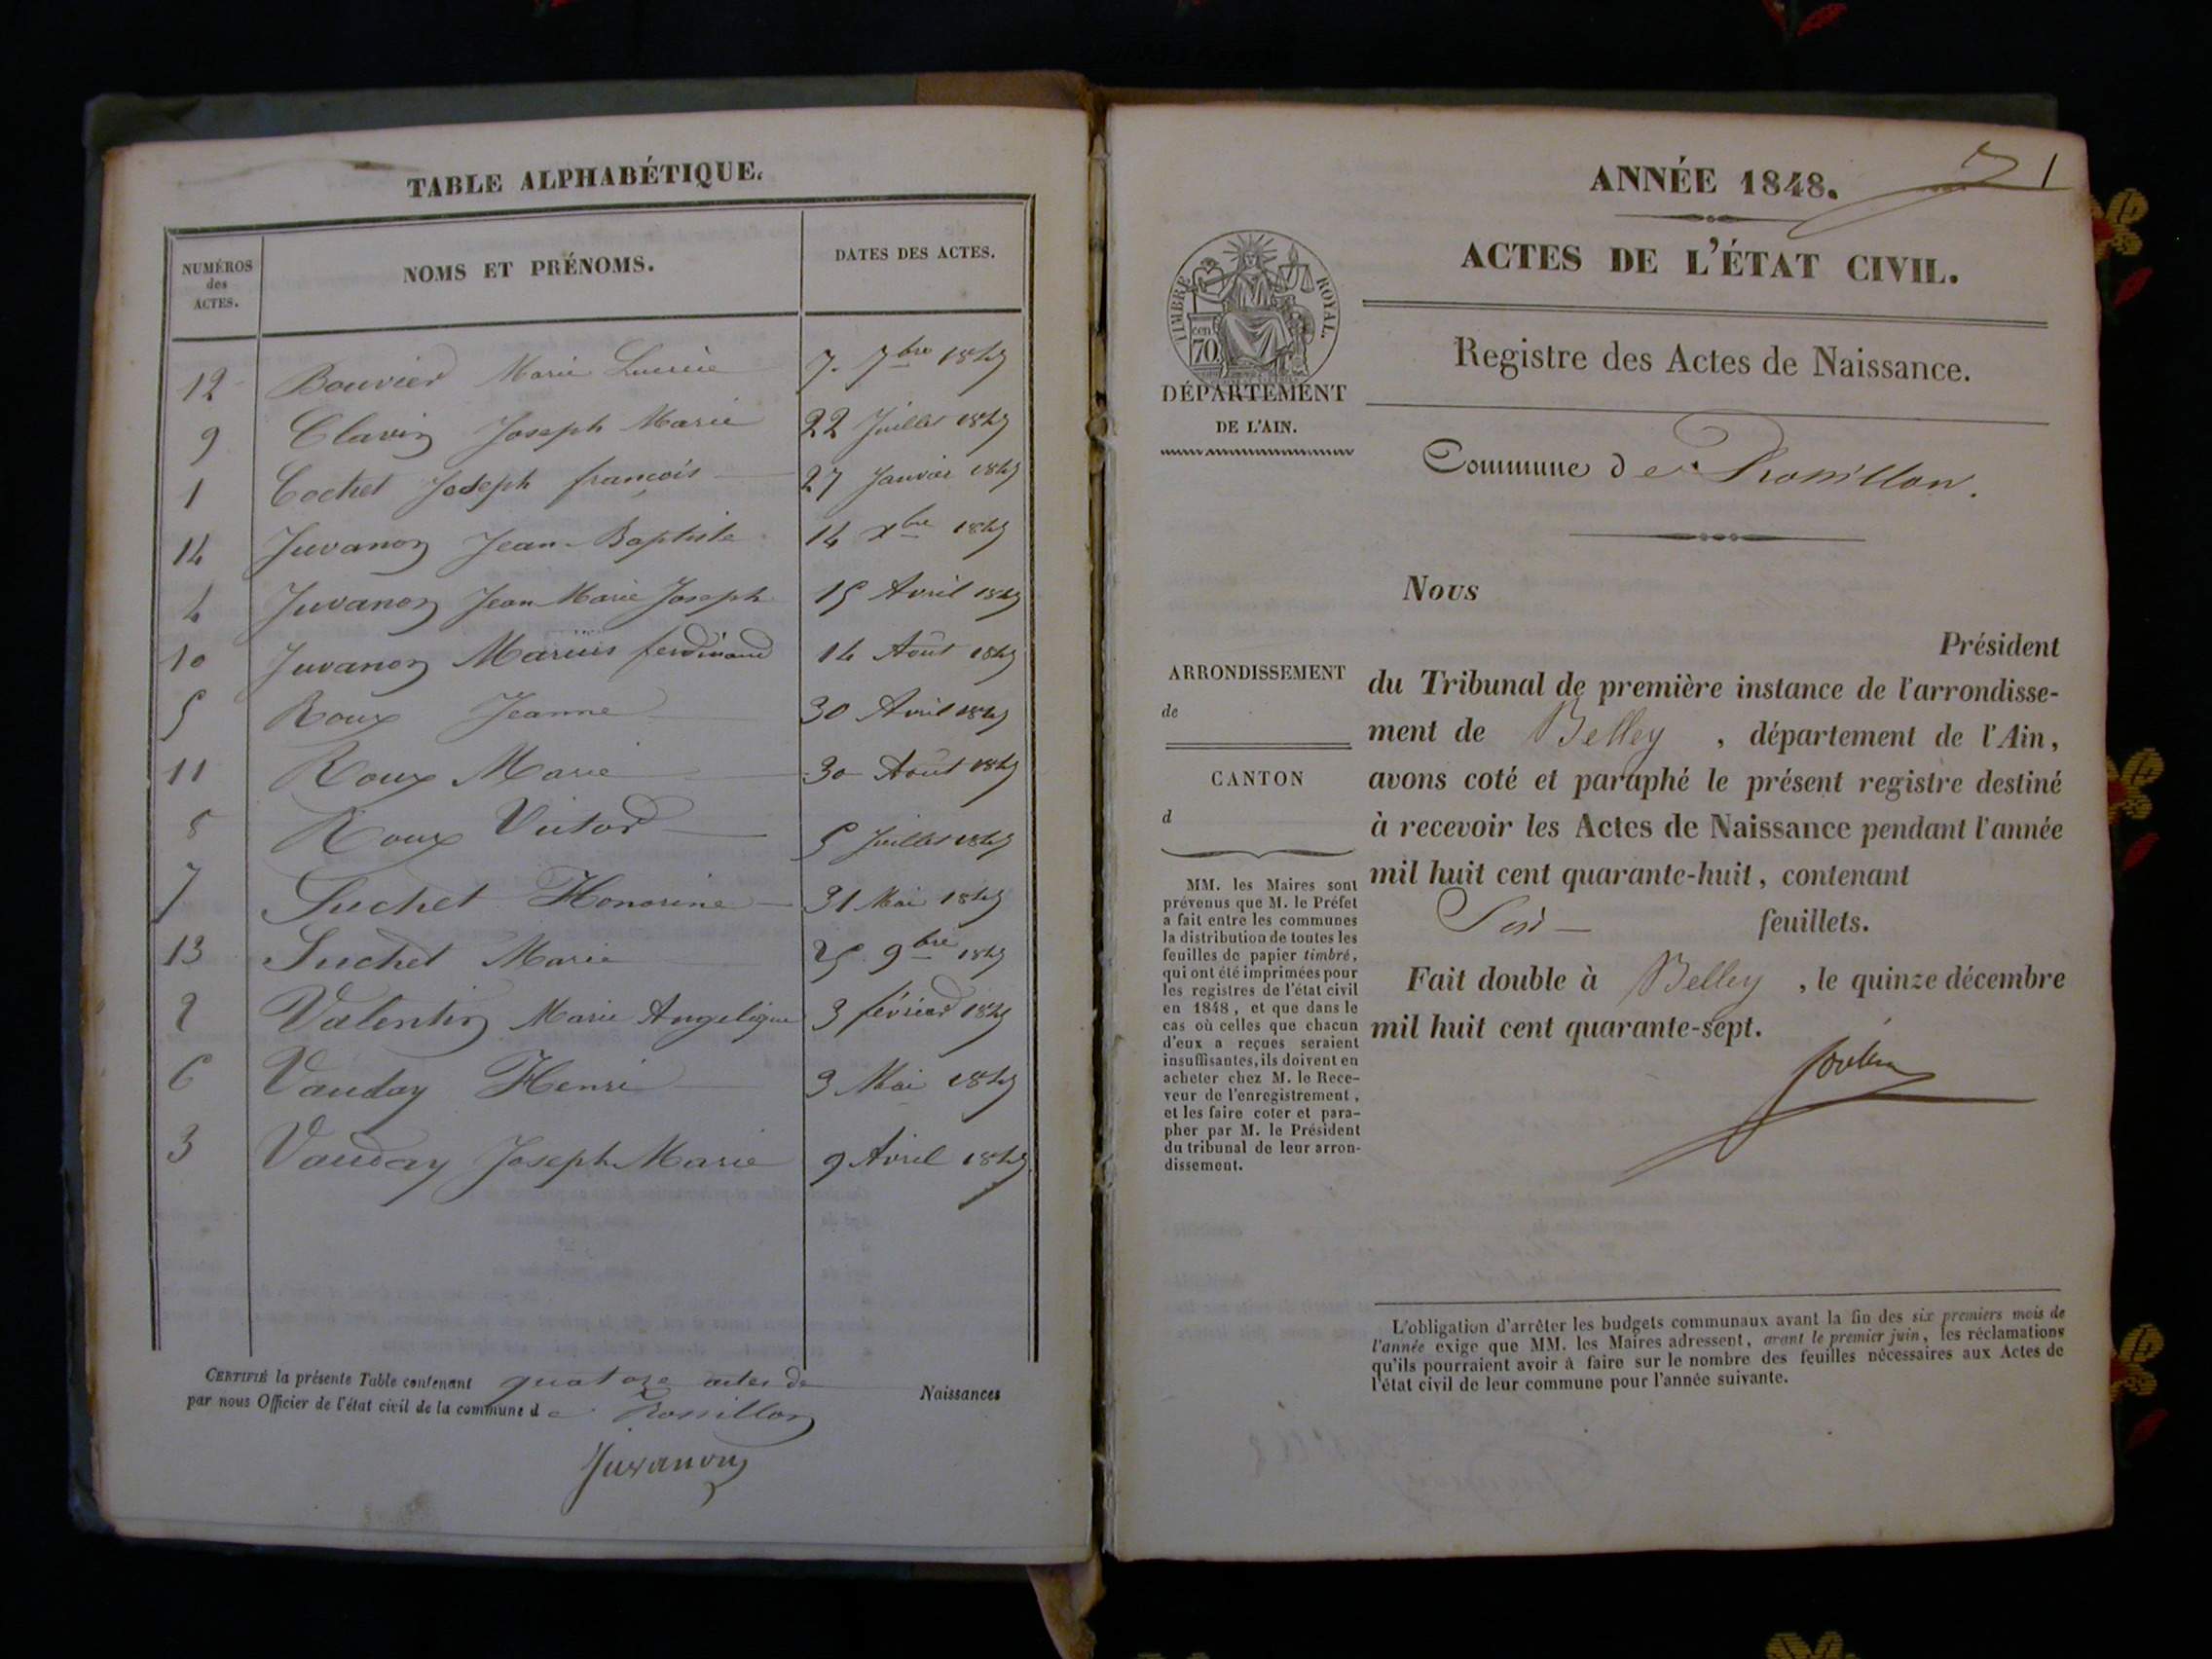 TABLE ALPHABÉTIQUE.
NUMÉROS des ACTES.
NOMS ET PRÉNOMS.
DATES DES ACTES.
12 Bouvier Marie Lucrèce 7. 7bre 1847
9 Clavin Joseph Marie 22 Juillet 1847
1 Cochet Joseph françois 27 Janvier 1847
14 Juvanon Jean-Baptiste 14 xbre 1847
4 Juvanon Jean Marie Joseph 15 Avril 1847
10 Juvanon Marius ferdinand 14 Août 1847
5 Roux Jeanne 30 Avril 1847
11 Roux Marie 30 Août 1847
8 Roux Victor 5 Juillet 1847
7 Suchet Honorine 31 Mai 1847
13 Suchet Marie 25 9bre 1847
2 Valentin Marie Angelique 3 février 1847
6 Vauday Henri 3 Mai 1847
3 Vauday Joseph Marie 9 Avril 1847
CERTIFIÉ la présente Table contenant quatoze actes de Naissances
par nous Officier de l'état civil de la commune de Rossillon
Juvanon
1
ANNÉE 1848.
ACTES DE L'ÉTAT CIVIL.
TIMBRE ROYAL.
cen 70
DÉPARTEMENT
DE L'AIN.
Registre des Actes de Naissance.
Commune de Rossillon.
ARRONDISSEMENT
de
CANTON
d
MM. les Maires sont
prévenus que M. le Préfet
a fait entre les communes
la distribution de toutes les
feuilles de papier timbré,
qui ont été imprimées pour
les registres de l'état civil
en 1848, et que dans le
cas où celles que chacun
d'eux a reçues seraient
insuffisantes, ils doivent en
acheter chez M. le Rece-
veur de l'enregistrement,
et les faire coter et para-
pher par M. le Président
du tribunal de leur arron-
dissement.
Nous
Président
du Tribunal de première instance de l'arrondisse-
ment de Belley , département de l'Ain,
avons coté et paraphé le présent registre destiné
à recevoir les Actes de Naissance pendant l'année
mil huit cent quarante-huit, contenant
feuillets.
Fait double à Belley , le quinze décembre
mil huit cent quarante-sept.
L'obligation d'arrêter les budgets communaux avant la fin des six premiers mois de
l'année exige que MM. les Maires adressent, avant le premier juin, les réclamations
qu'ils pourraient avoir à faire sur le nombre des feuilles nécessaires aux Actes de
l'état civil de leur commune pour l'année suivante.